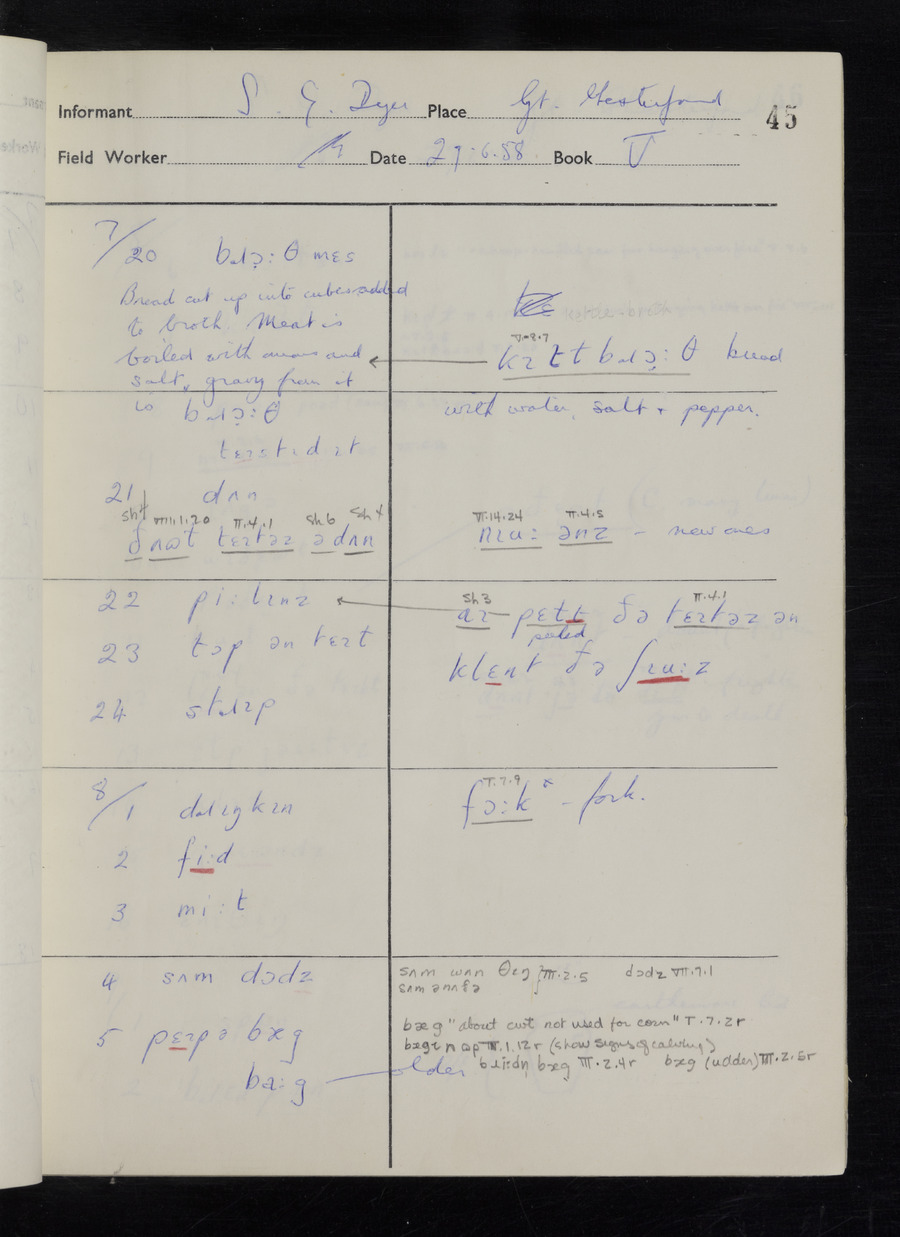 Informant S. G. Dyer Place Gt. Chesterford 45
Field Worker Date 27.6.58. Book V
7/20 bɹɔ̣:θ mɛs
Bread cut up into cubes added
to broth. Meat is
boiled with and
salt, gravy from it
is bɹɔ:θ
V.8.7
kɪtt bɹɔ̣:θ bread
with water, salt + pepper.
tɛɪstɪd ɪt
21 dʌn
sh4 VIII.1.20 II.4.1 sh6 sh4
ð nɒt tɛɪtəz ə dʌn
VI.14.24 II.4.5
nɪu: ənz - new ones
22 pi:lɪnz
23 tɔp ən tɛɪt
24 stɹɪp
sh3 II.4.1
aɪ pɛtt ðə tɛɪtəz ən
peeled
klɛnt ðə ʃɪu:z
8/1 dɹɪŋkɪn
2 fi:d
3 mi:t
I.7.9
fɔ:k* - fork.
4 sʌm dɔdz
sʌm wʌn θɪŋ } III.2.5 dɔdz VII.7.1
5 pɛɪpə bæg
bæ:g
bæg "about cwt not used for corn" I.7.2r
III.1.12r (show signs of calving)
older bæg III.2.4r bæg (udder) III.2.5r